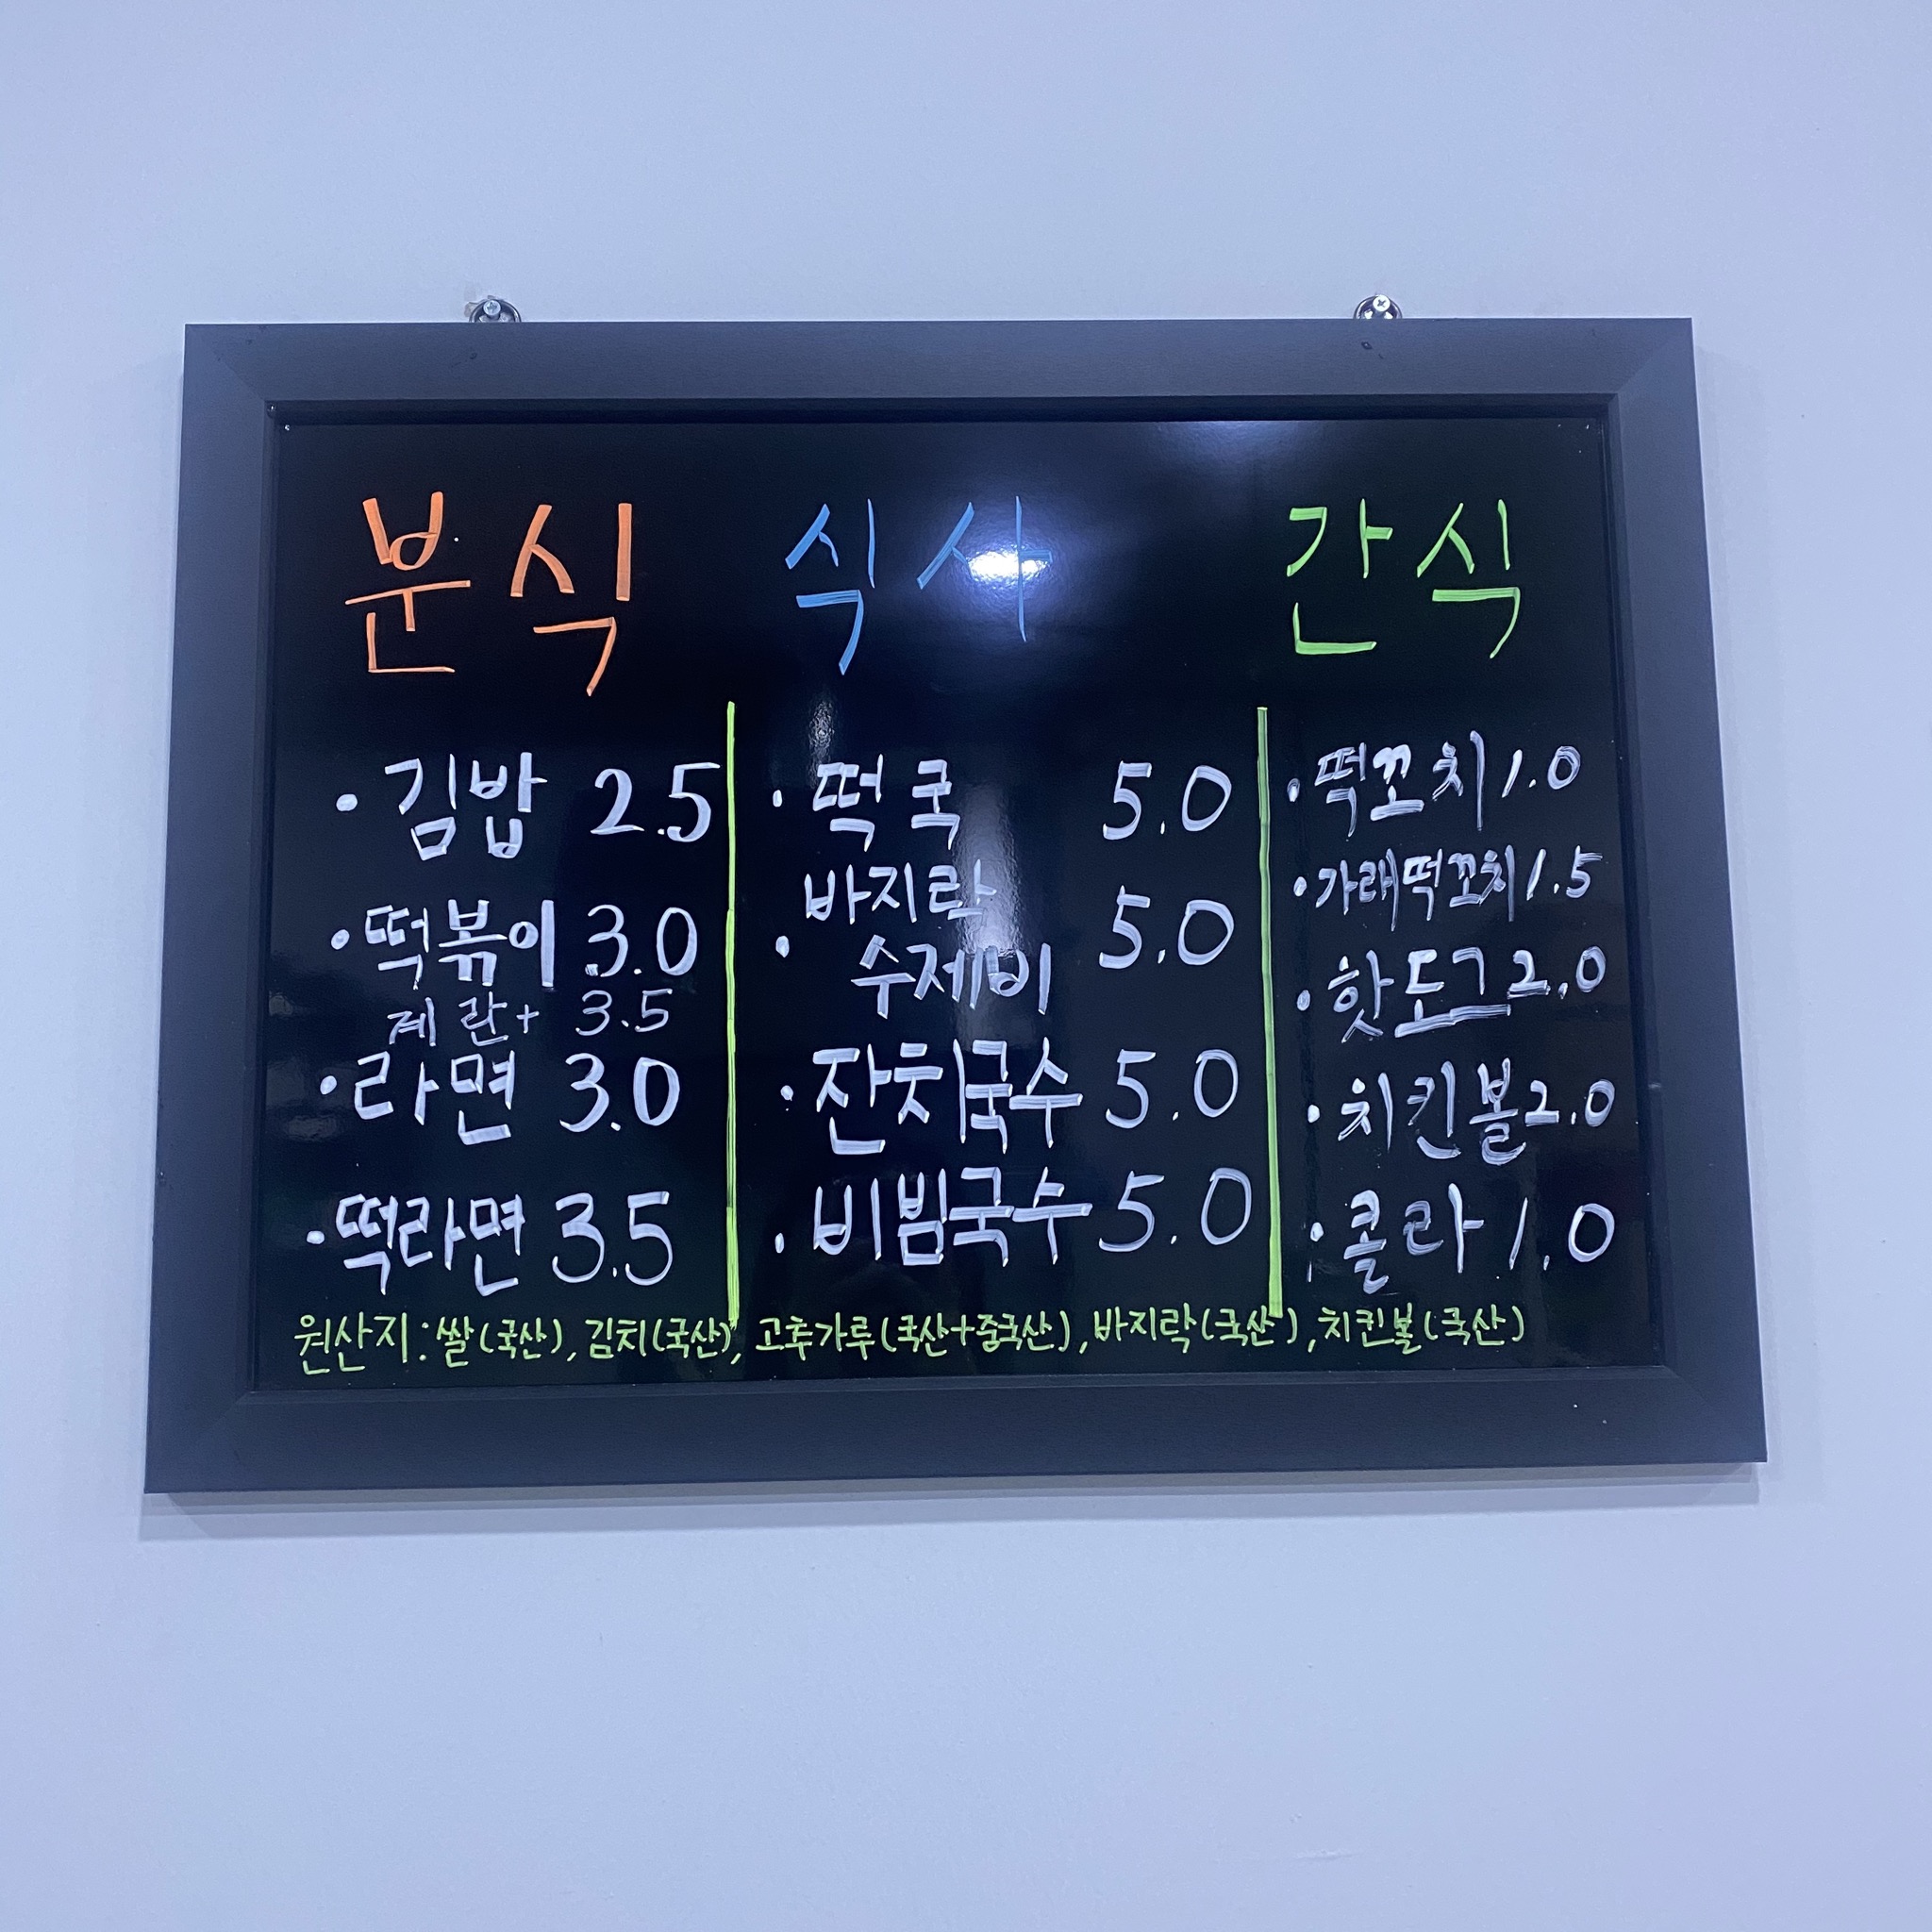 분식
김밥 2.5
떡볶이 3.0
계란+ 3.5
라면 3.0
떡라면 3.5
식사
떡국 5.0
바지락
수제비 5.0
잔치국수 5.0
비빔국수 5.0
간식
떡꼬치 1.0
가래떡꼬치 1.5
핫도그 2.0
치킨볼 2.0
콜라 1.0
원산지:쌀(국산), 김치(국산), 고추가루(국산+중국산), 바지락(국산), 치킨볼(국산)